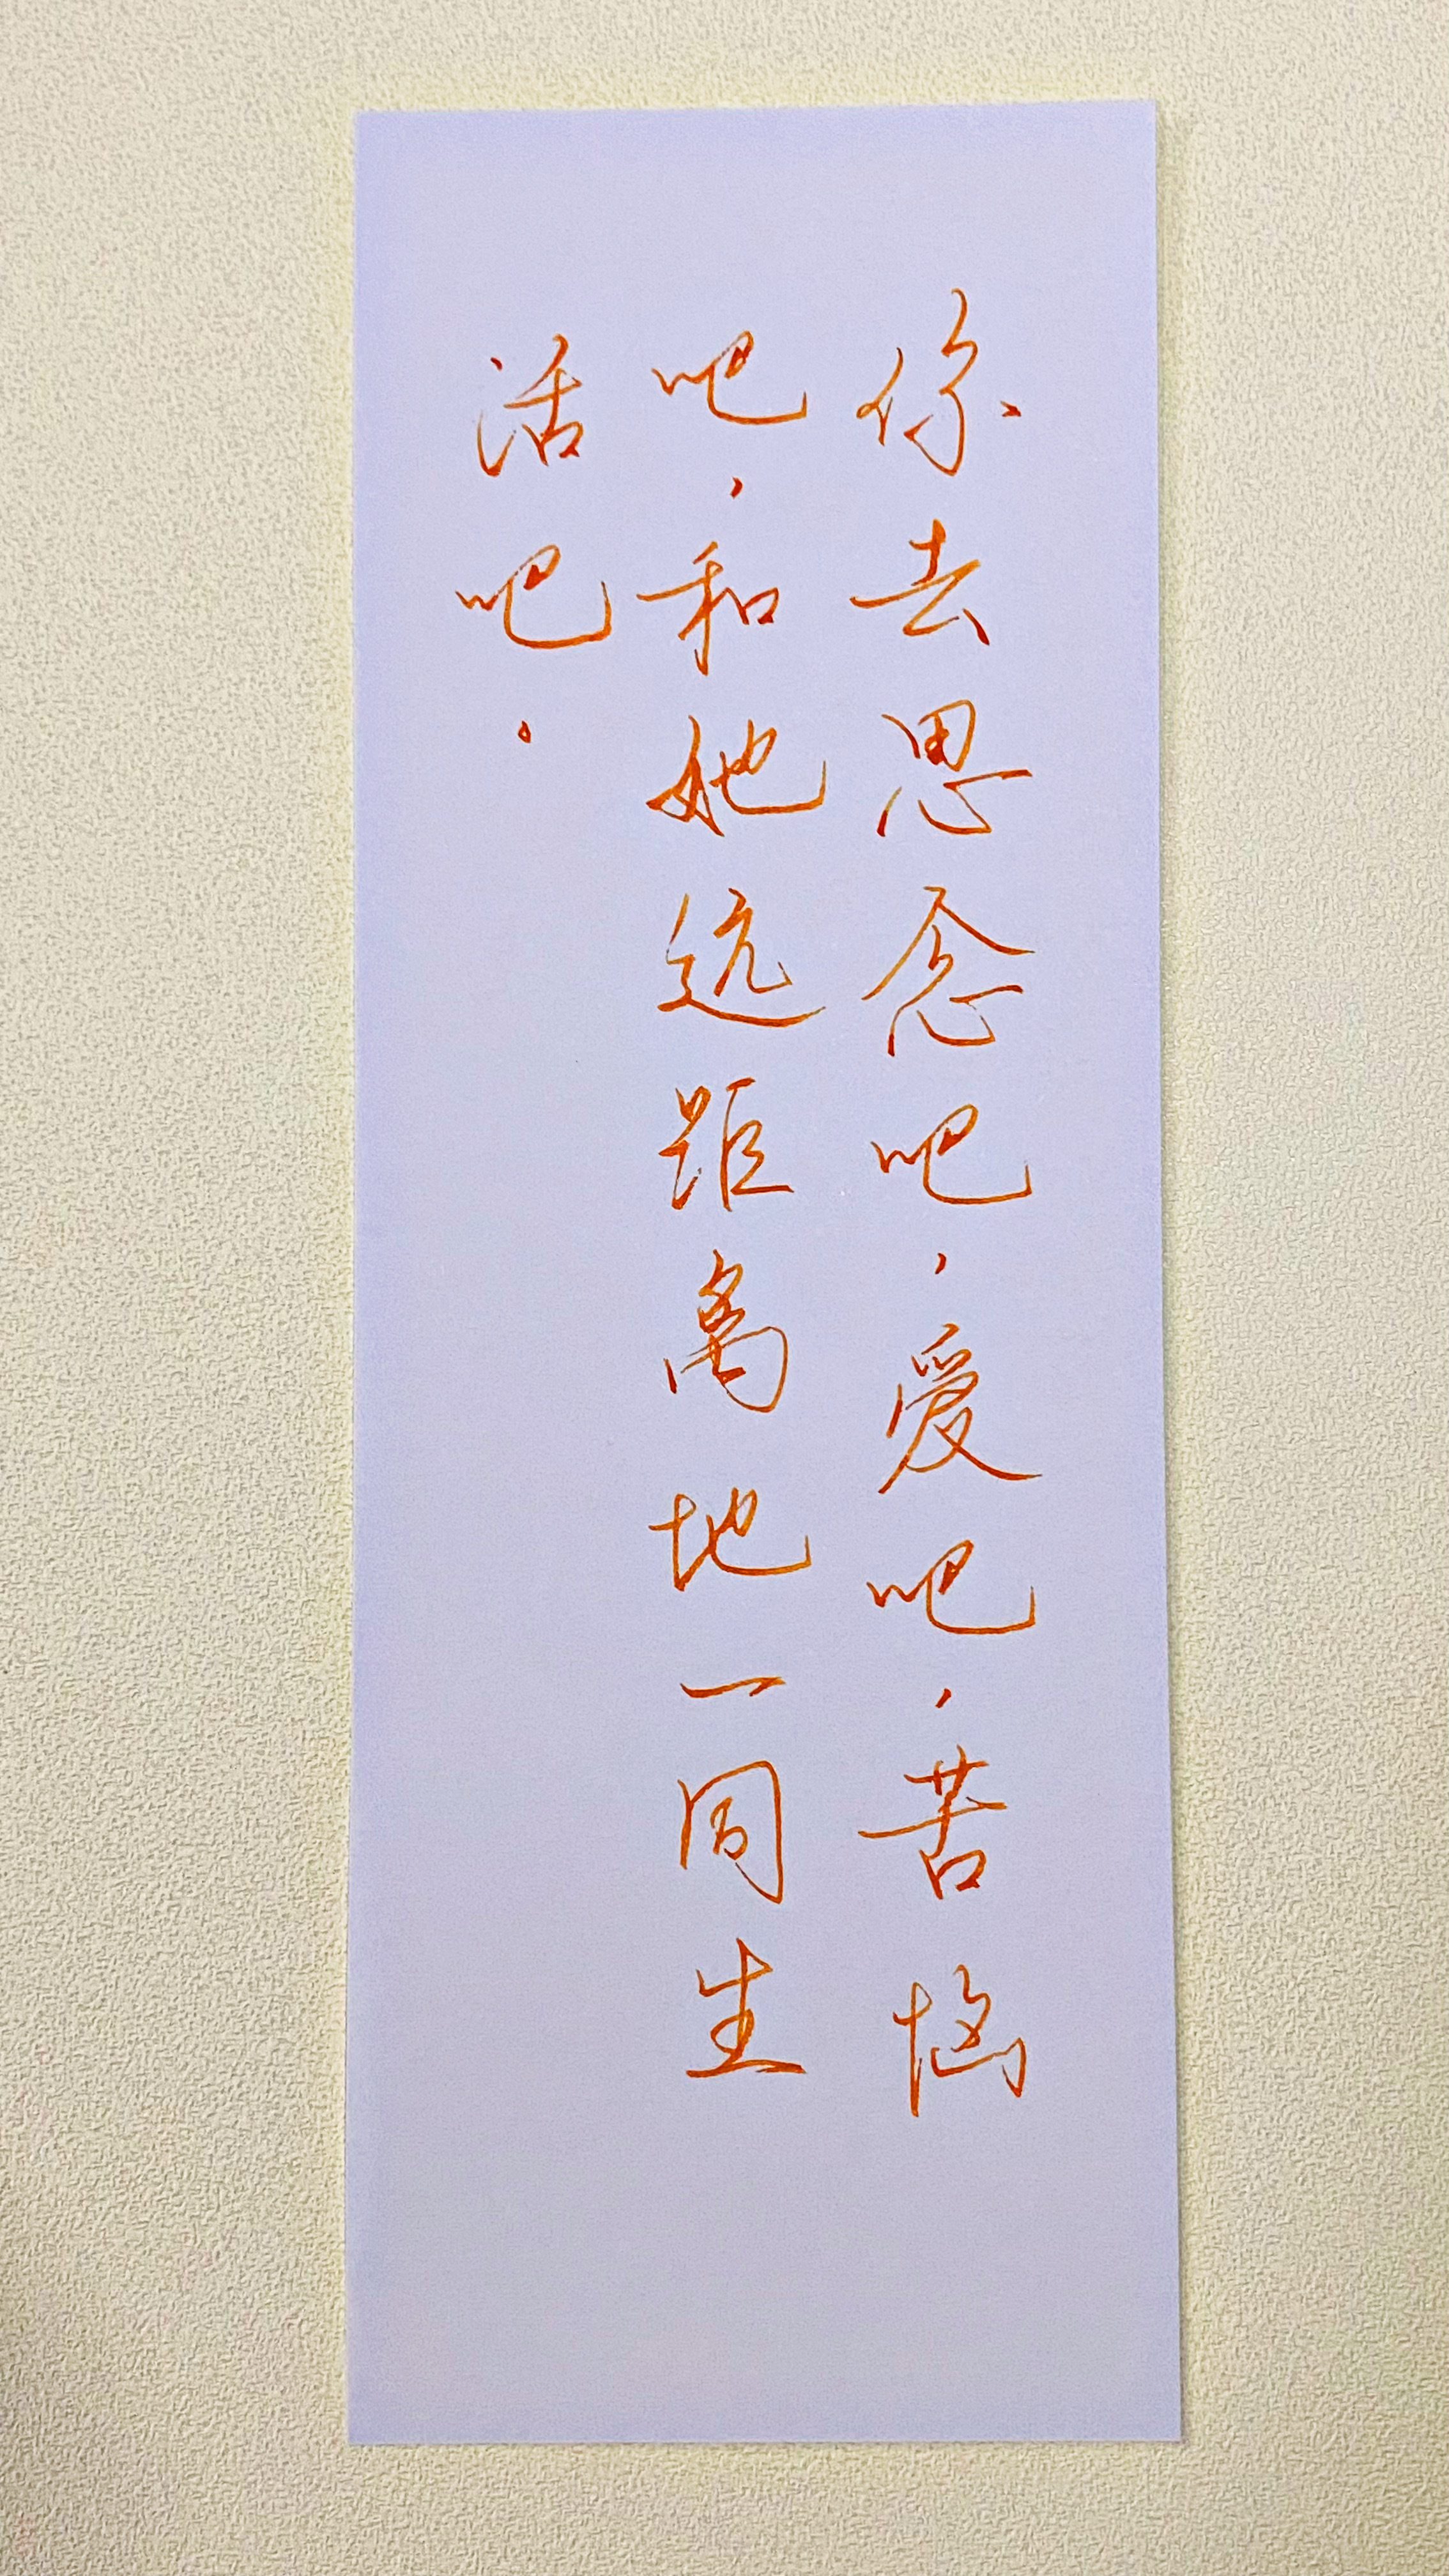 你去思念吧，爱吧，苦恼
吧，和她远距离地一同生
活吧。